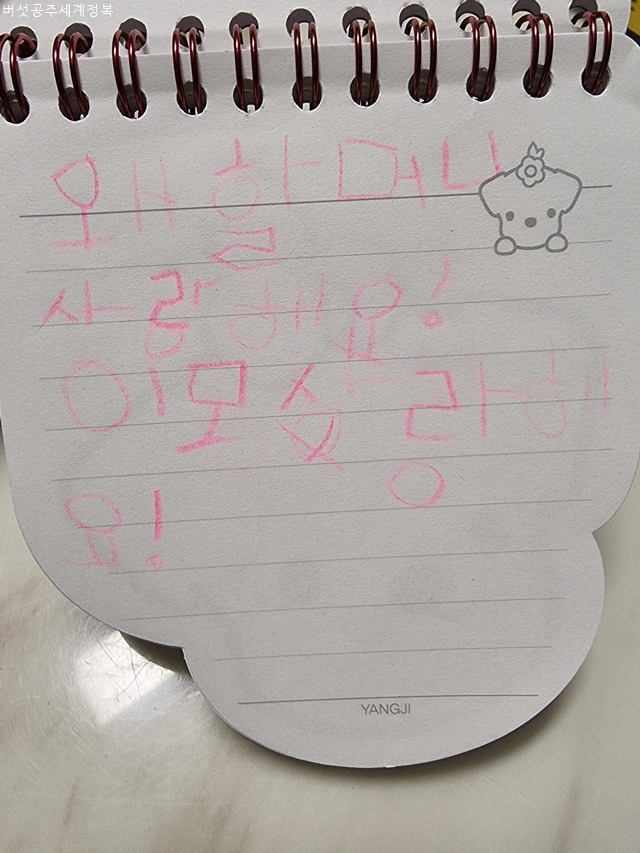 버섯공주세계정복
왜할머니
사랑해요!
이모사랑해
요!
YANGJI